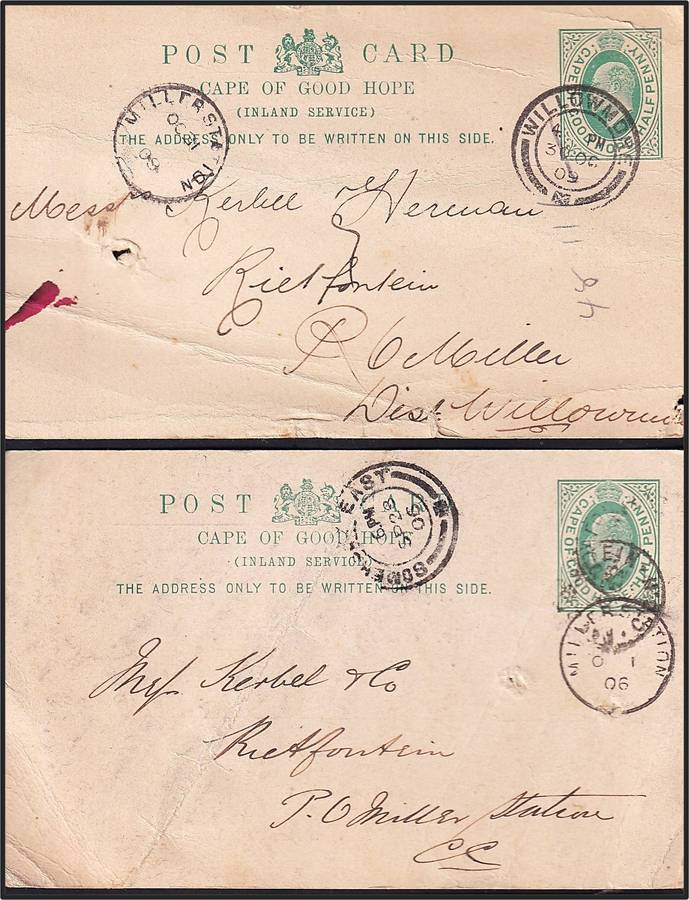 POST CARD
CAPE OF GOOD HOPE
(INLAND SERVICE)
THE ADDRESS ONLY TO BE WRITTEN ON THIS SIDE.
CAPE OF GOOD HOPE HALF PENNY
MILLER STATION
09
WILLOWMORE
PM
09
Messrs Kerbel & Herman
Rietfontein
P O Miller
Dist Willowmore
POST CARD
CAPE OF GOOD HOPE
(INLAND SERVICE)
THE ADDRESS ONLY TO BE WRITTEN ON THIS SIDE.
SOMERSET EAST
6 PM
SP 28
06
MILLER STATION
O 1
06
Mess Kerbel & Co
Rietfontein
P.O Miller Station
CC